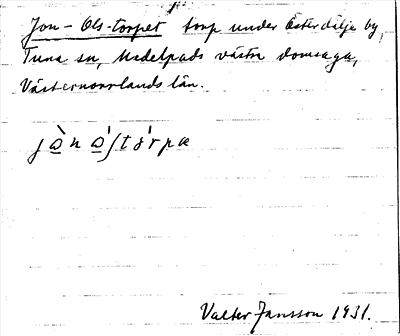 Jon-Ols-torpet torp under Österdilje by,
Tuna sn, Medelpads västra domsaga,
Västernorrlands län.
Valter Jansson 1931.